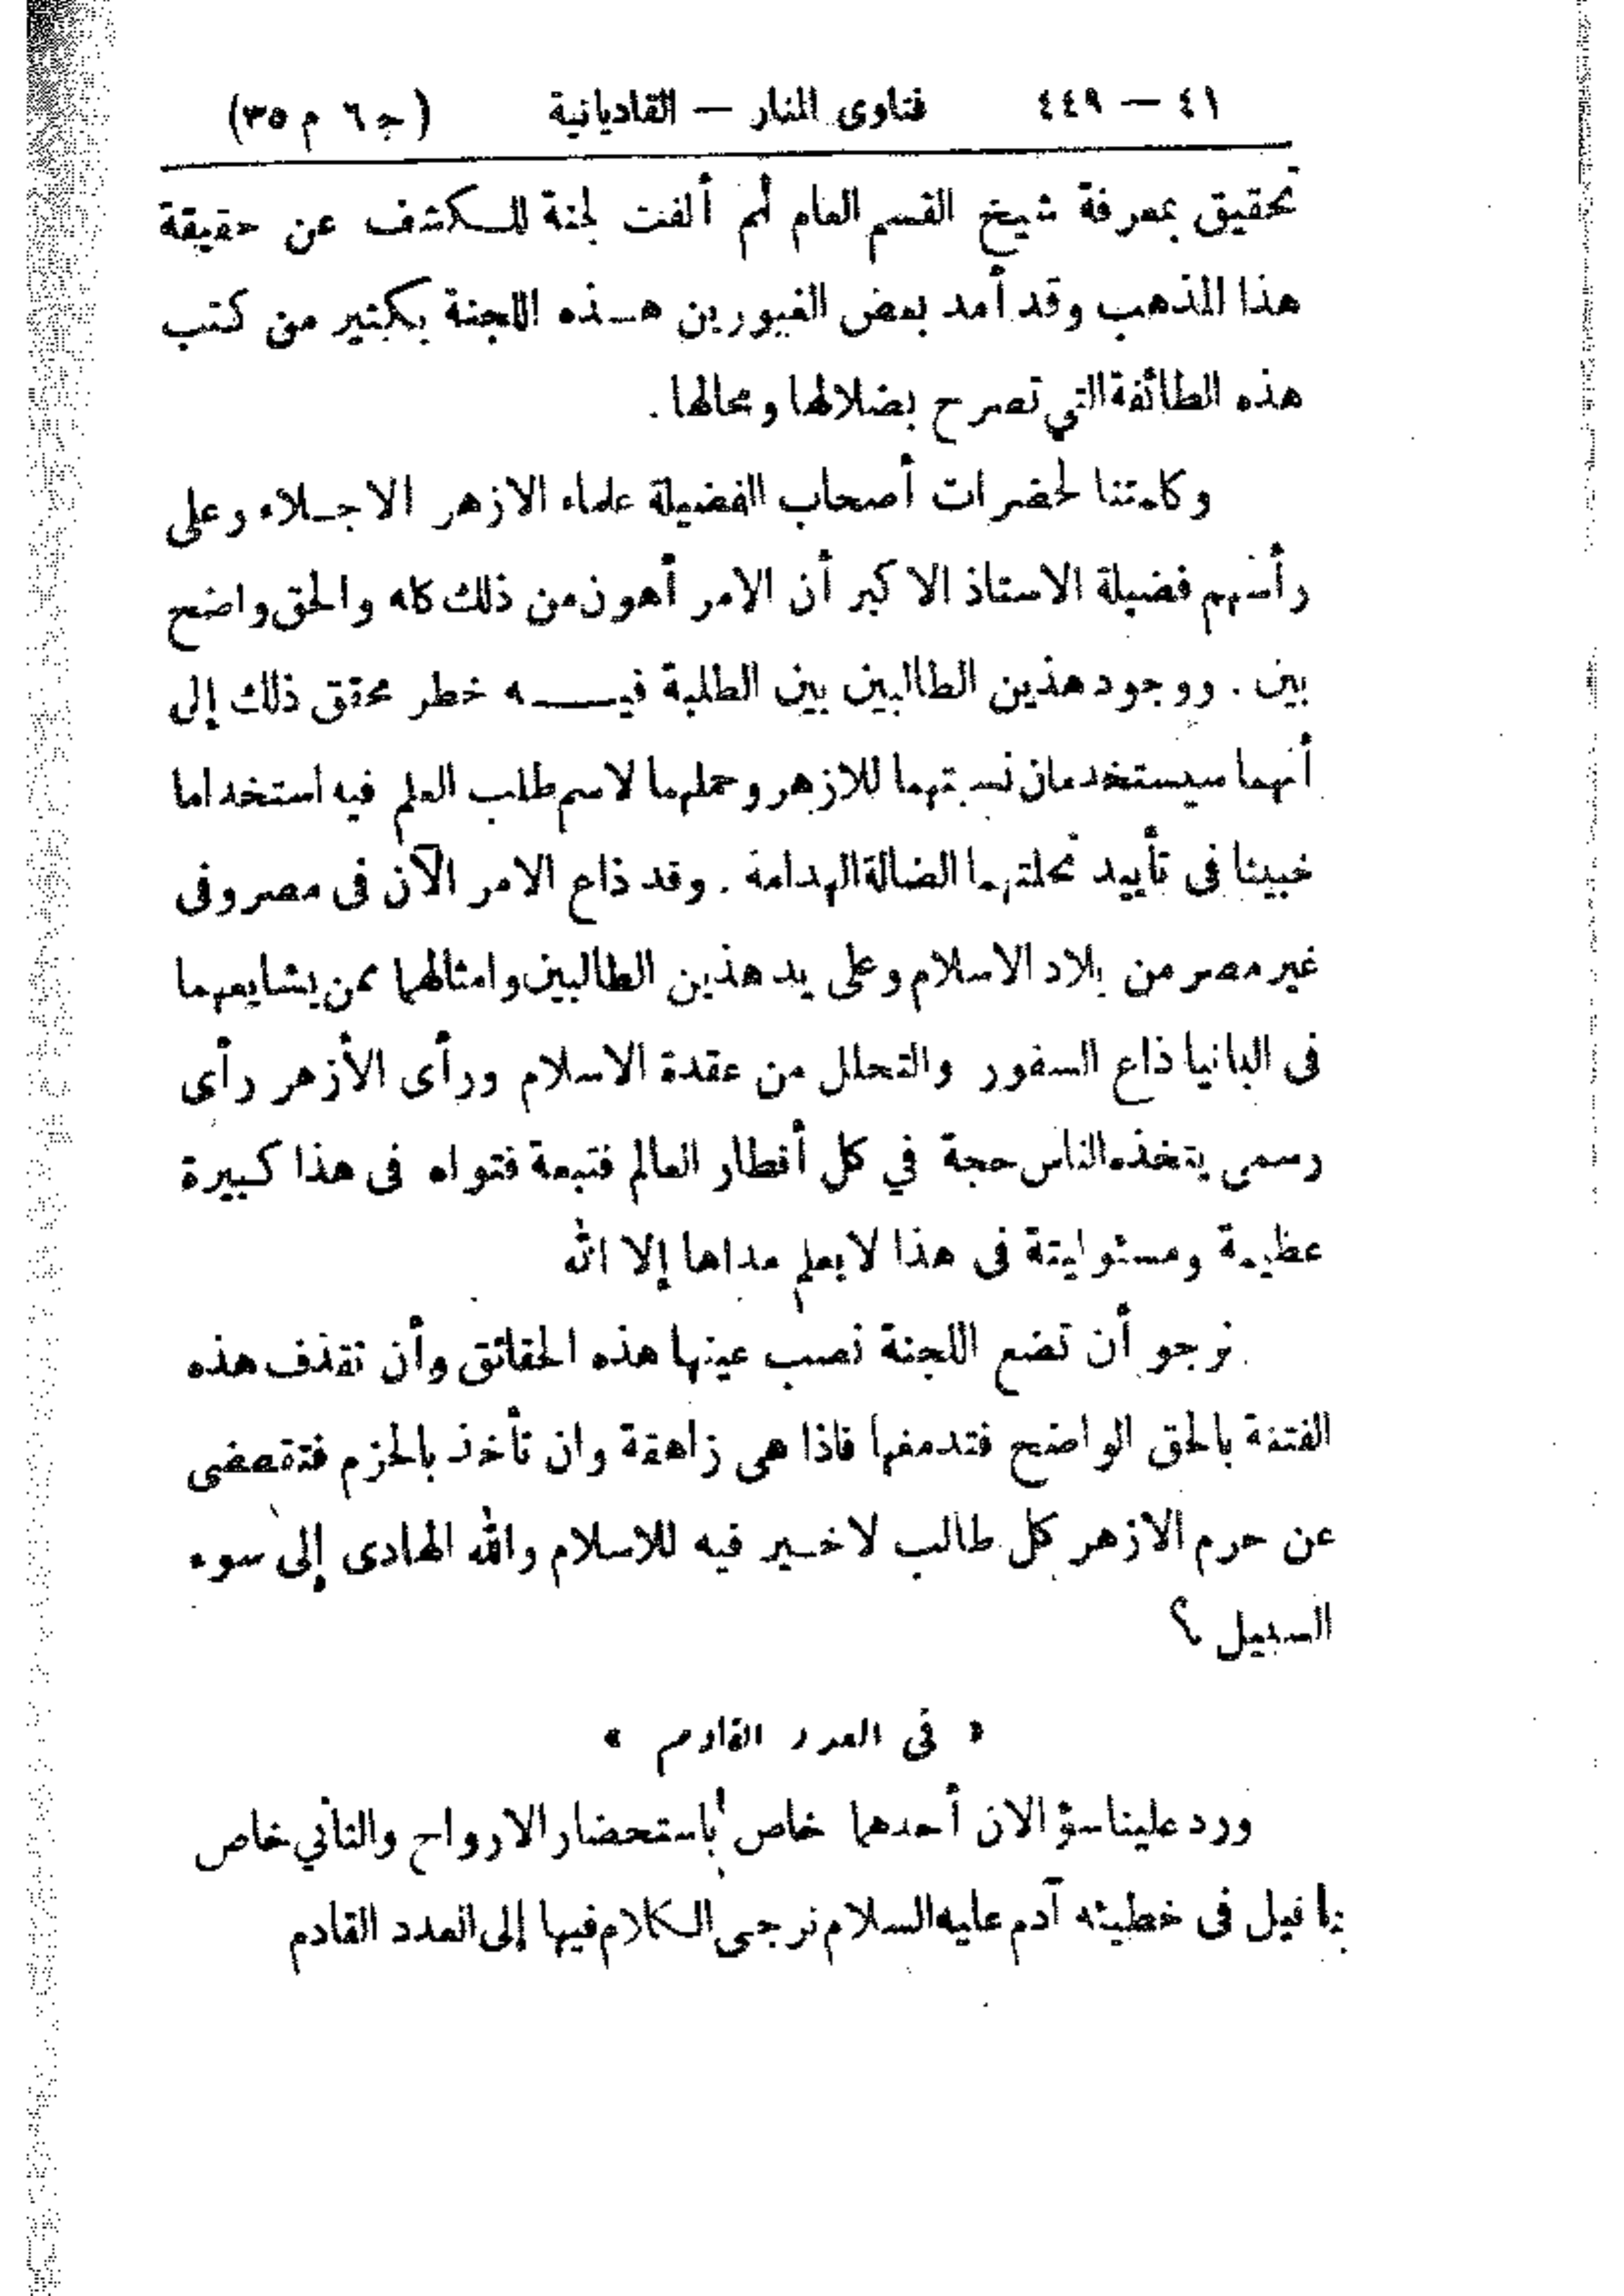 ٤١ — ٤٤٩ فتاوى المنار — القاديانية (ج ٦ م ٣٥)
تحقيق بمعرفة شيخ القسم العام ثم ألفت لجنة للكشف عن حقيقة
هذا المذهب وقد أمد بعض الغيورين هذه اللجنة بكثير من كتب
هذه الطائفة التي تصرح بضلالها ومحالها .
وكلمتنا لحضرات أصحاب الفضيلة علماء الازهر الاجلاء وعلى
رأسهم فضيلة الاستاذ الاكبر أن الامر أهون من ذلك كله والحق واضح
بين . ووجود هذين الطالبين بين الطلبة فيه خطر محقق ذلك إلى
أنهما سيستخدمان نسبتهما للازهر وحملهما لاسم طلب العلم فيه استخداما
خبيثا فى تأييد نحلتهما الضالة الهدامة . وقد ذاع الامر الآن فى مصر وفى
غير مصر من بلاد الاسلام وعلى يد هذين الطالبين وامثالهما ممن يشايعهما
فى البانيا ذاع السفور والتحلل من عقدة الاسلام ورأى الأزهر رأى
رسمى يتخذه الناس حجة في كل أقطار العالم فتبعة فتواه فى هذا كبيرة
عظيمة ومسئوليتة فى هذا لا يعلم مداها إلا الله
نرجو أن تضع اللجنة نصب عينها هذه الحقائق وأن تقذف هذه
الفتنة بالحق الواضح فتدمغها فاذا هى زاهقة وان تأخذ بالحزم فتقصى
عن حرم الازهر كل طالب لا خير فيه للاسلام والله الهادى إلى سوء
السبيل ؟
« فى العدد القادم »
ورد علينا سؤالان أحدهما خاص باستحضار الارواح والثاني خاص
بما قيل فى خطيئه آدم عليه السلام نرجى الكلام فيها إلى العدد القادم